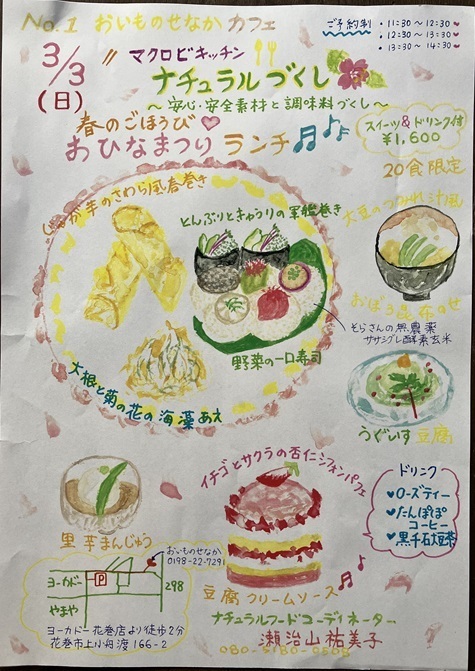 No.1 おいものせなか カフェ
ご予約制
・11:30〜12:30
・12:30〜13:30
・13:30〜14:30
3/3
(日)
マクロビキッチン
ナチュラルづくし
〜安心・安全素材と調味料づくし〜
春のごほうび
おひなまつりランチ
スイーツ&ドリンク付
¥1,600
20食限定
じゃが芋のさわら風春巻き
とんぶりときゅうりの軍艦巻き
大豆のつみれ汁風
おぼろ昆布のせ
そらさんの無農薬
ササシグレ酵素玄米
野菜の一口寿司
大根と菊の花の海藻あえ
うぐいす豆腐
里芋まんじゅう
イチゴとサクラの杏仁シフォンパフェ
ドリンク
ローズティー
たんぽぽコーヒー
黒千石大豆茶
おいものせなか
0198-22-7291
ヨーカドー
P
298
やまや
ヨーカドー花巻店より徒歩2分
花巻市上小舟渡166-2
豆腐クリームソース
ナチュラルフードコーディネーター
瀬治山祐美子